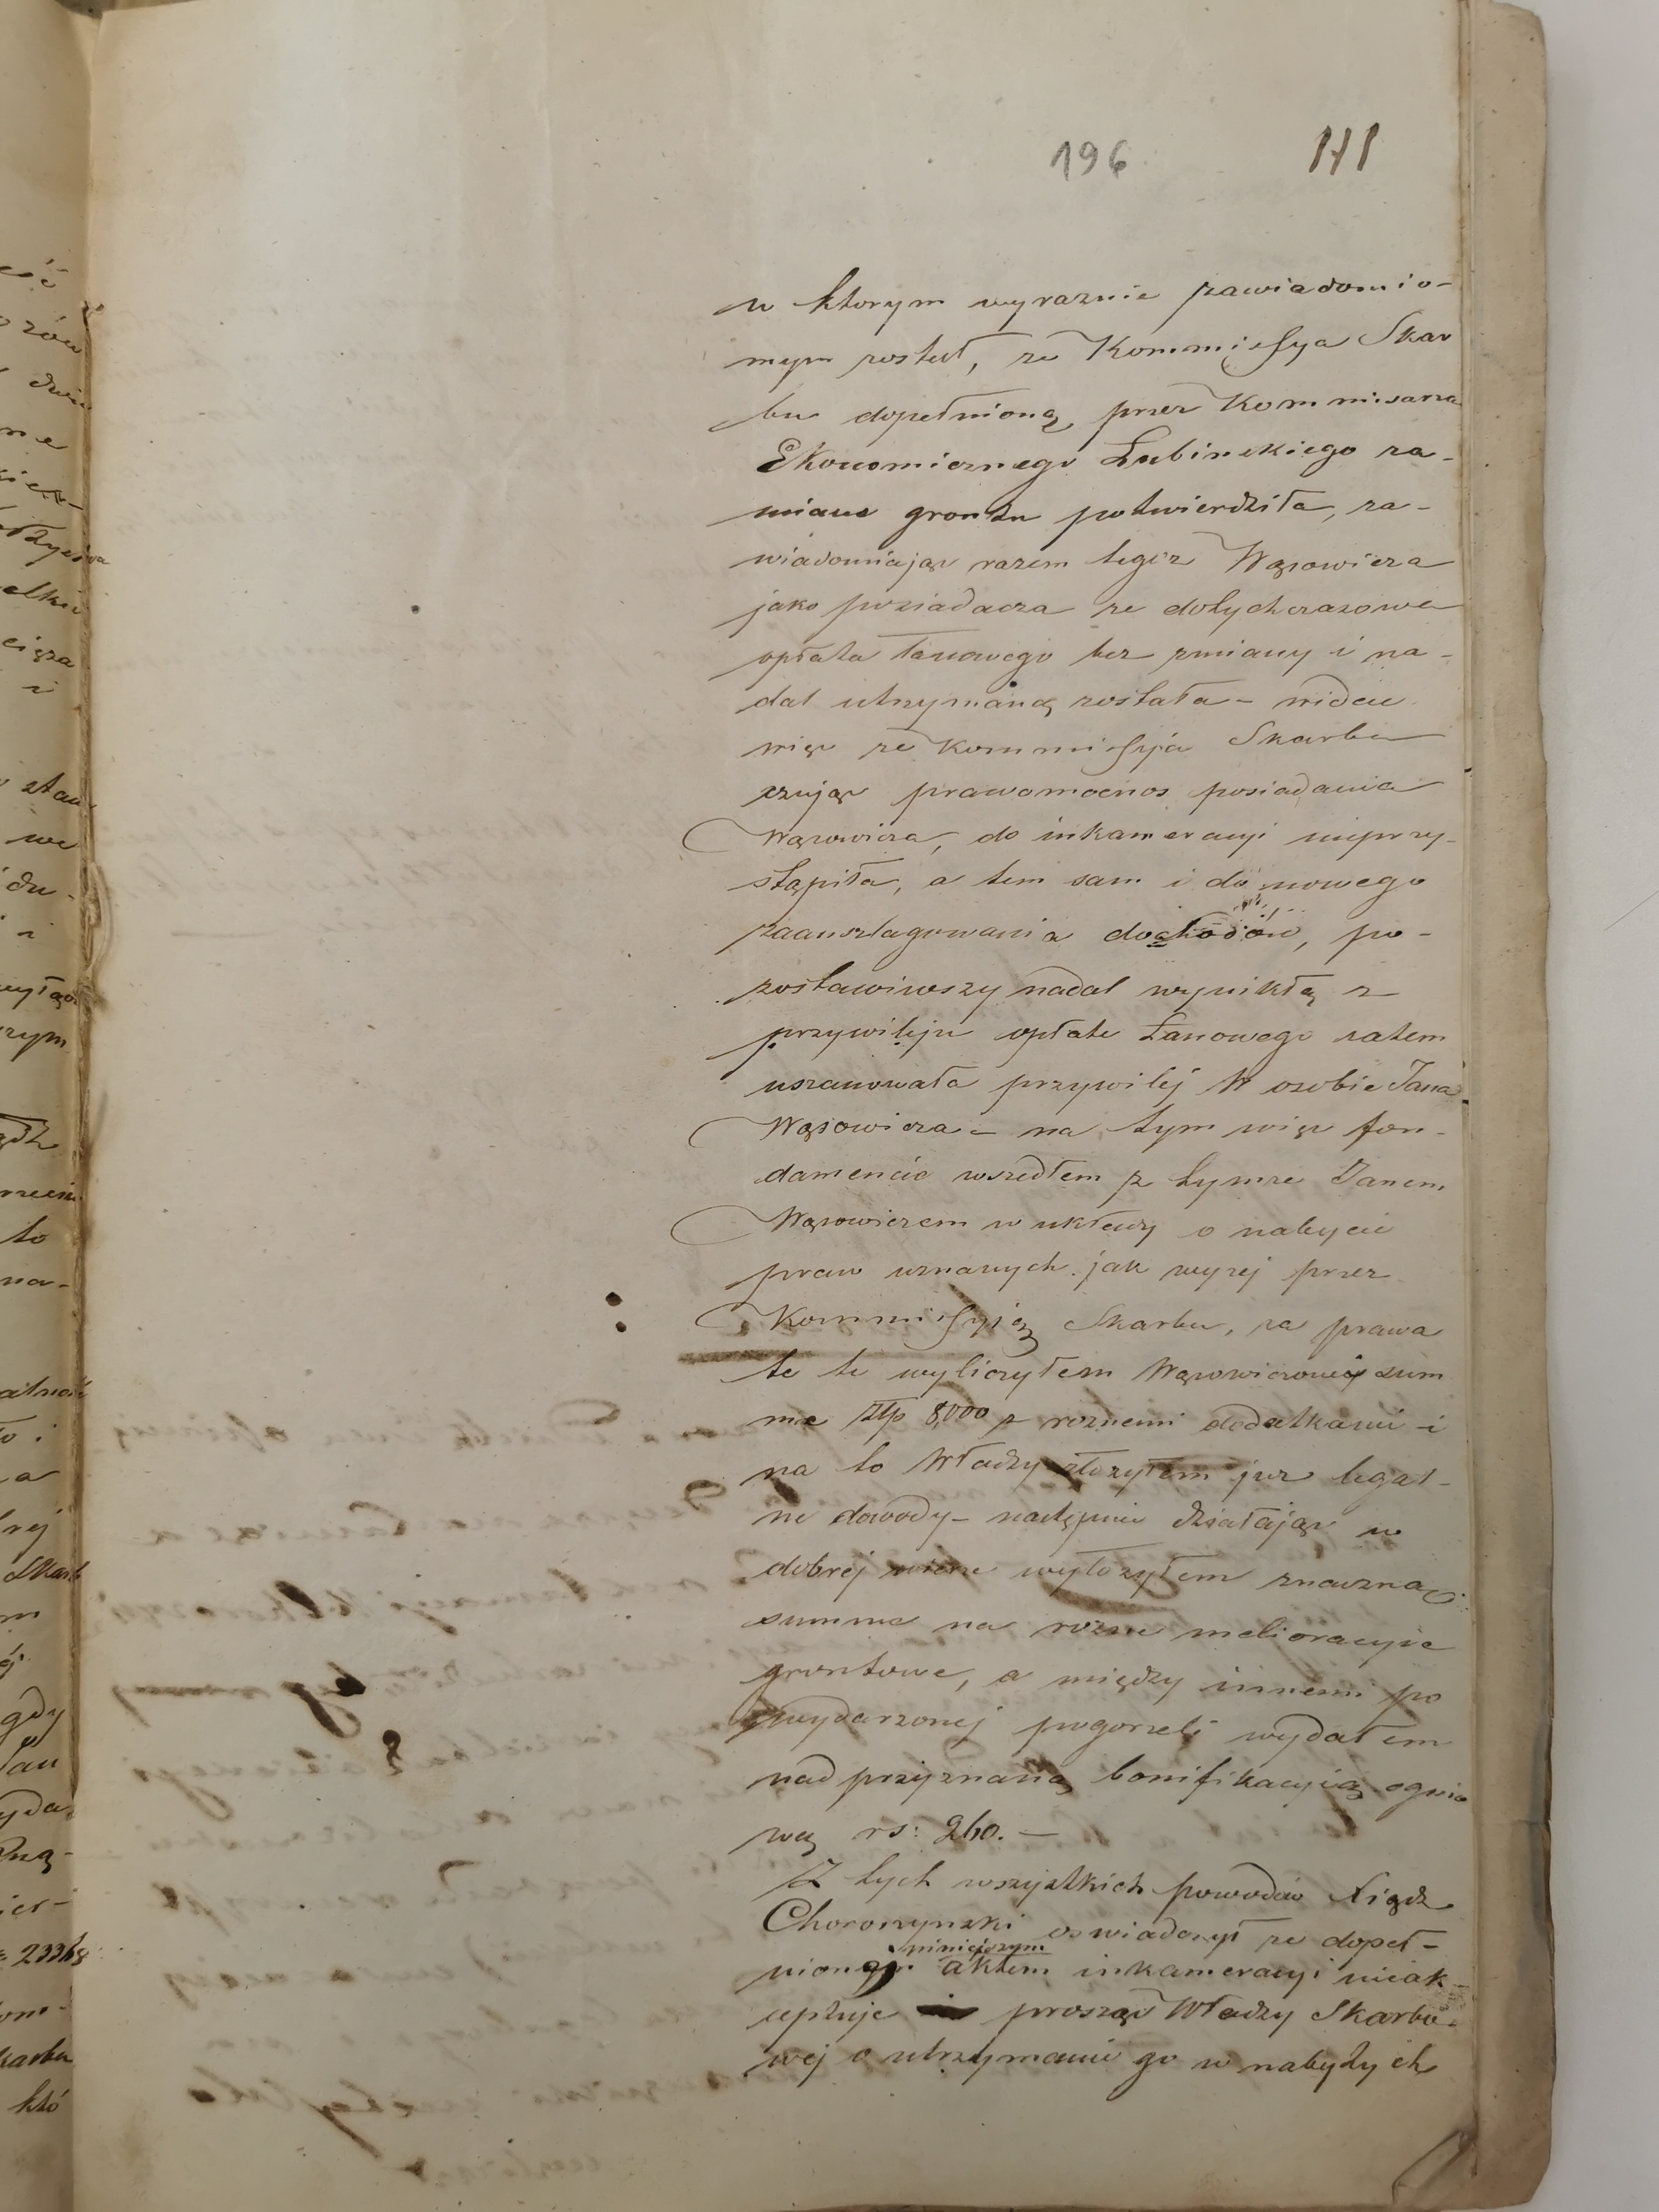 196 141
w ktorym wyraznie zawiadomio-
nym został, ze Kommissya Skar
bu dopełnioną przez Kommisarza
Ekonomicznego Łubinskiego za-
miane grontu potwierdziła, za-
wiadomiając razem tegoz Wąsowicza
jako posiadacza ze dotychczasowa
opłata łanowego bez zmiany i na-
dal utrzymaną została - widząc
więc ze Kommissyja Skarbu
czując prawomocnos posiadania
Wąsowicza, do inkameracyi nieprzy-
stąpiła, a tem sam i do nowego
zaansztagowania dochodów, po-
zostawiwszy nadal wynikłą z
przywileju opłate Łanowego zatem
uszanowała przywilej w osobie Jana
Wąsowicza - na tym więc fon-
damencie wszedłem z tymze Janem
Wąsowiczem w układy o nabycie
praw uznanych jak wyzej przez
Kommissyją Skarbu, za prawa
te te wyliczyłem Wąsowiczowi sum
me złp 8,000 z roznemi dodatkami - i
na to Władzy złozyłem juz legal-
ne dowody - następnie działając w
dobrej wierze wyłozyłem znaczną
summe na rozne melioracyie
grontowe, a między innemi po
wydarzonej pogorzeli wydałem
nad przyznaną bonifikacyią ognio
wą rs: 260. -
Z tych wszystkich powodów Xiądz
Choroszynski oswiadczył ze dopeł-
niniejszym
nionej aktem inkameracyi nieak-
ceptuje prosząc Władzy Skarbo-
wej o utrzymanie go w nabytych